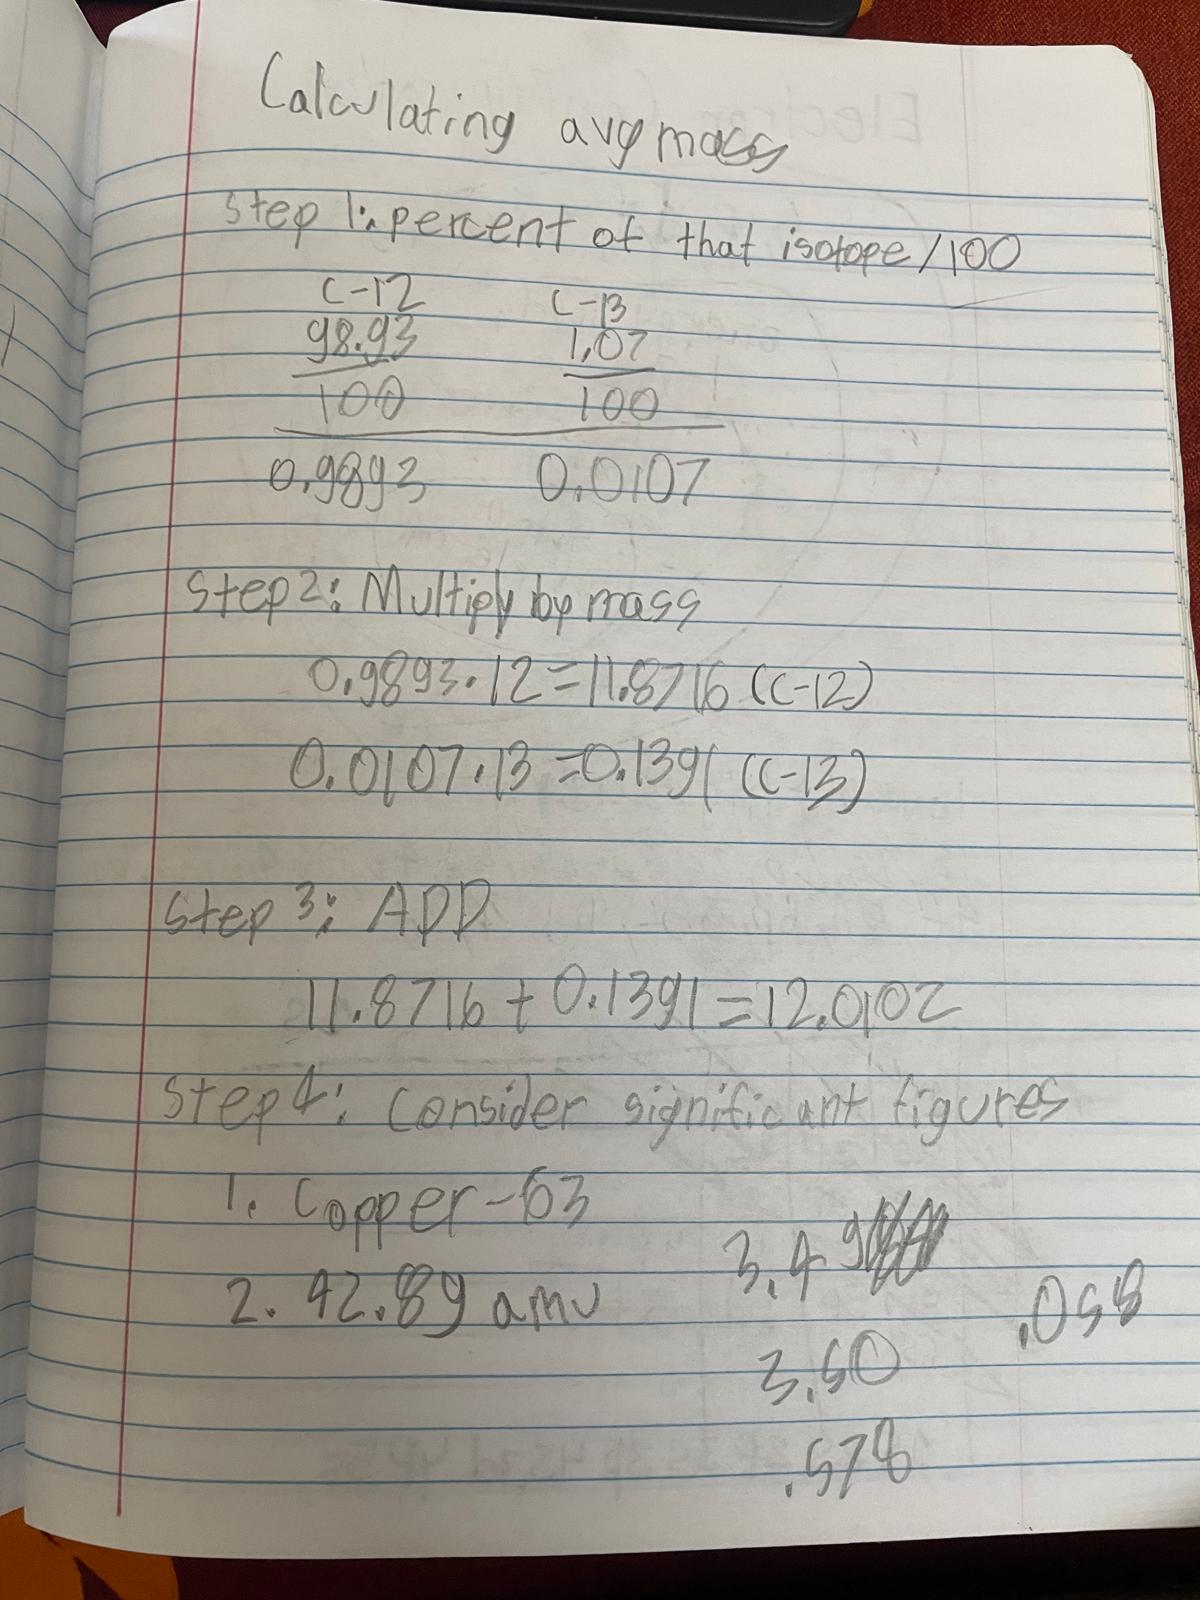 Calculating avg mass
Step 1: percent of that isotope/100
C-12 C-13
98.93 1.07
100 100
0.9893 0.0107
Step 2: Multiply by mass
0.9893·12=11.8716 (C-12)
0.0107·13=0.1391 (C-13)
Step 3: ADD
11.8716+0.1391=12.0102
Step 4: Consider significant figures
1. Copper-63
2. 42.89 amu
3.49
.058
3.50
.578